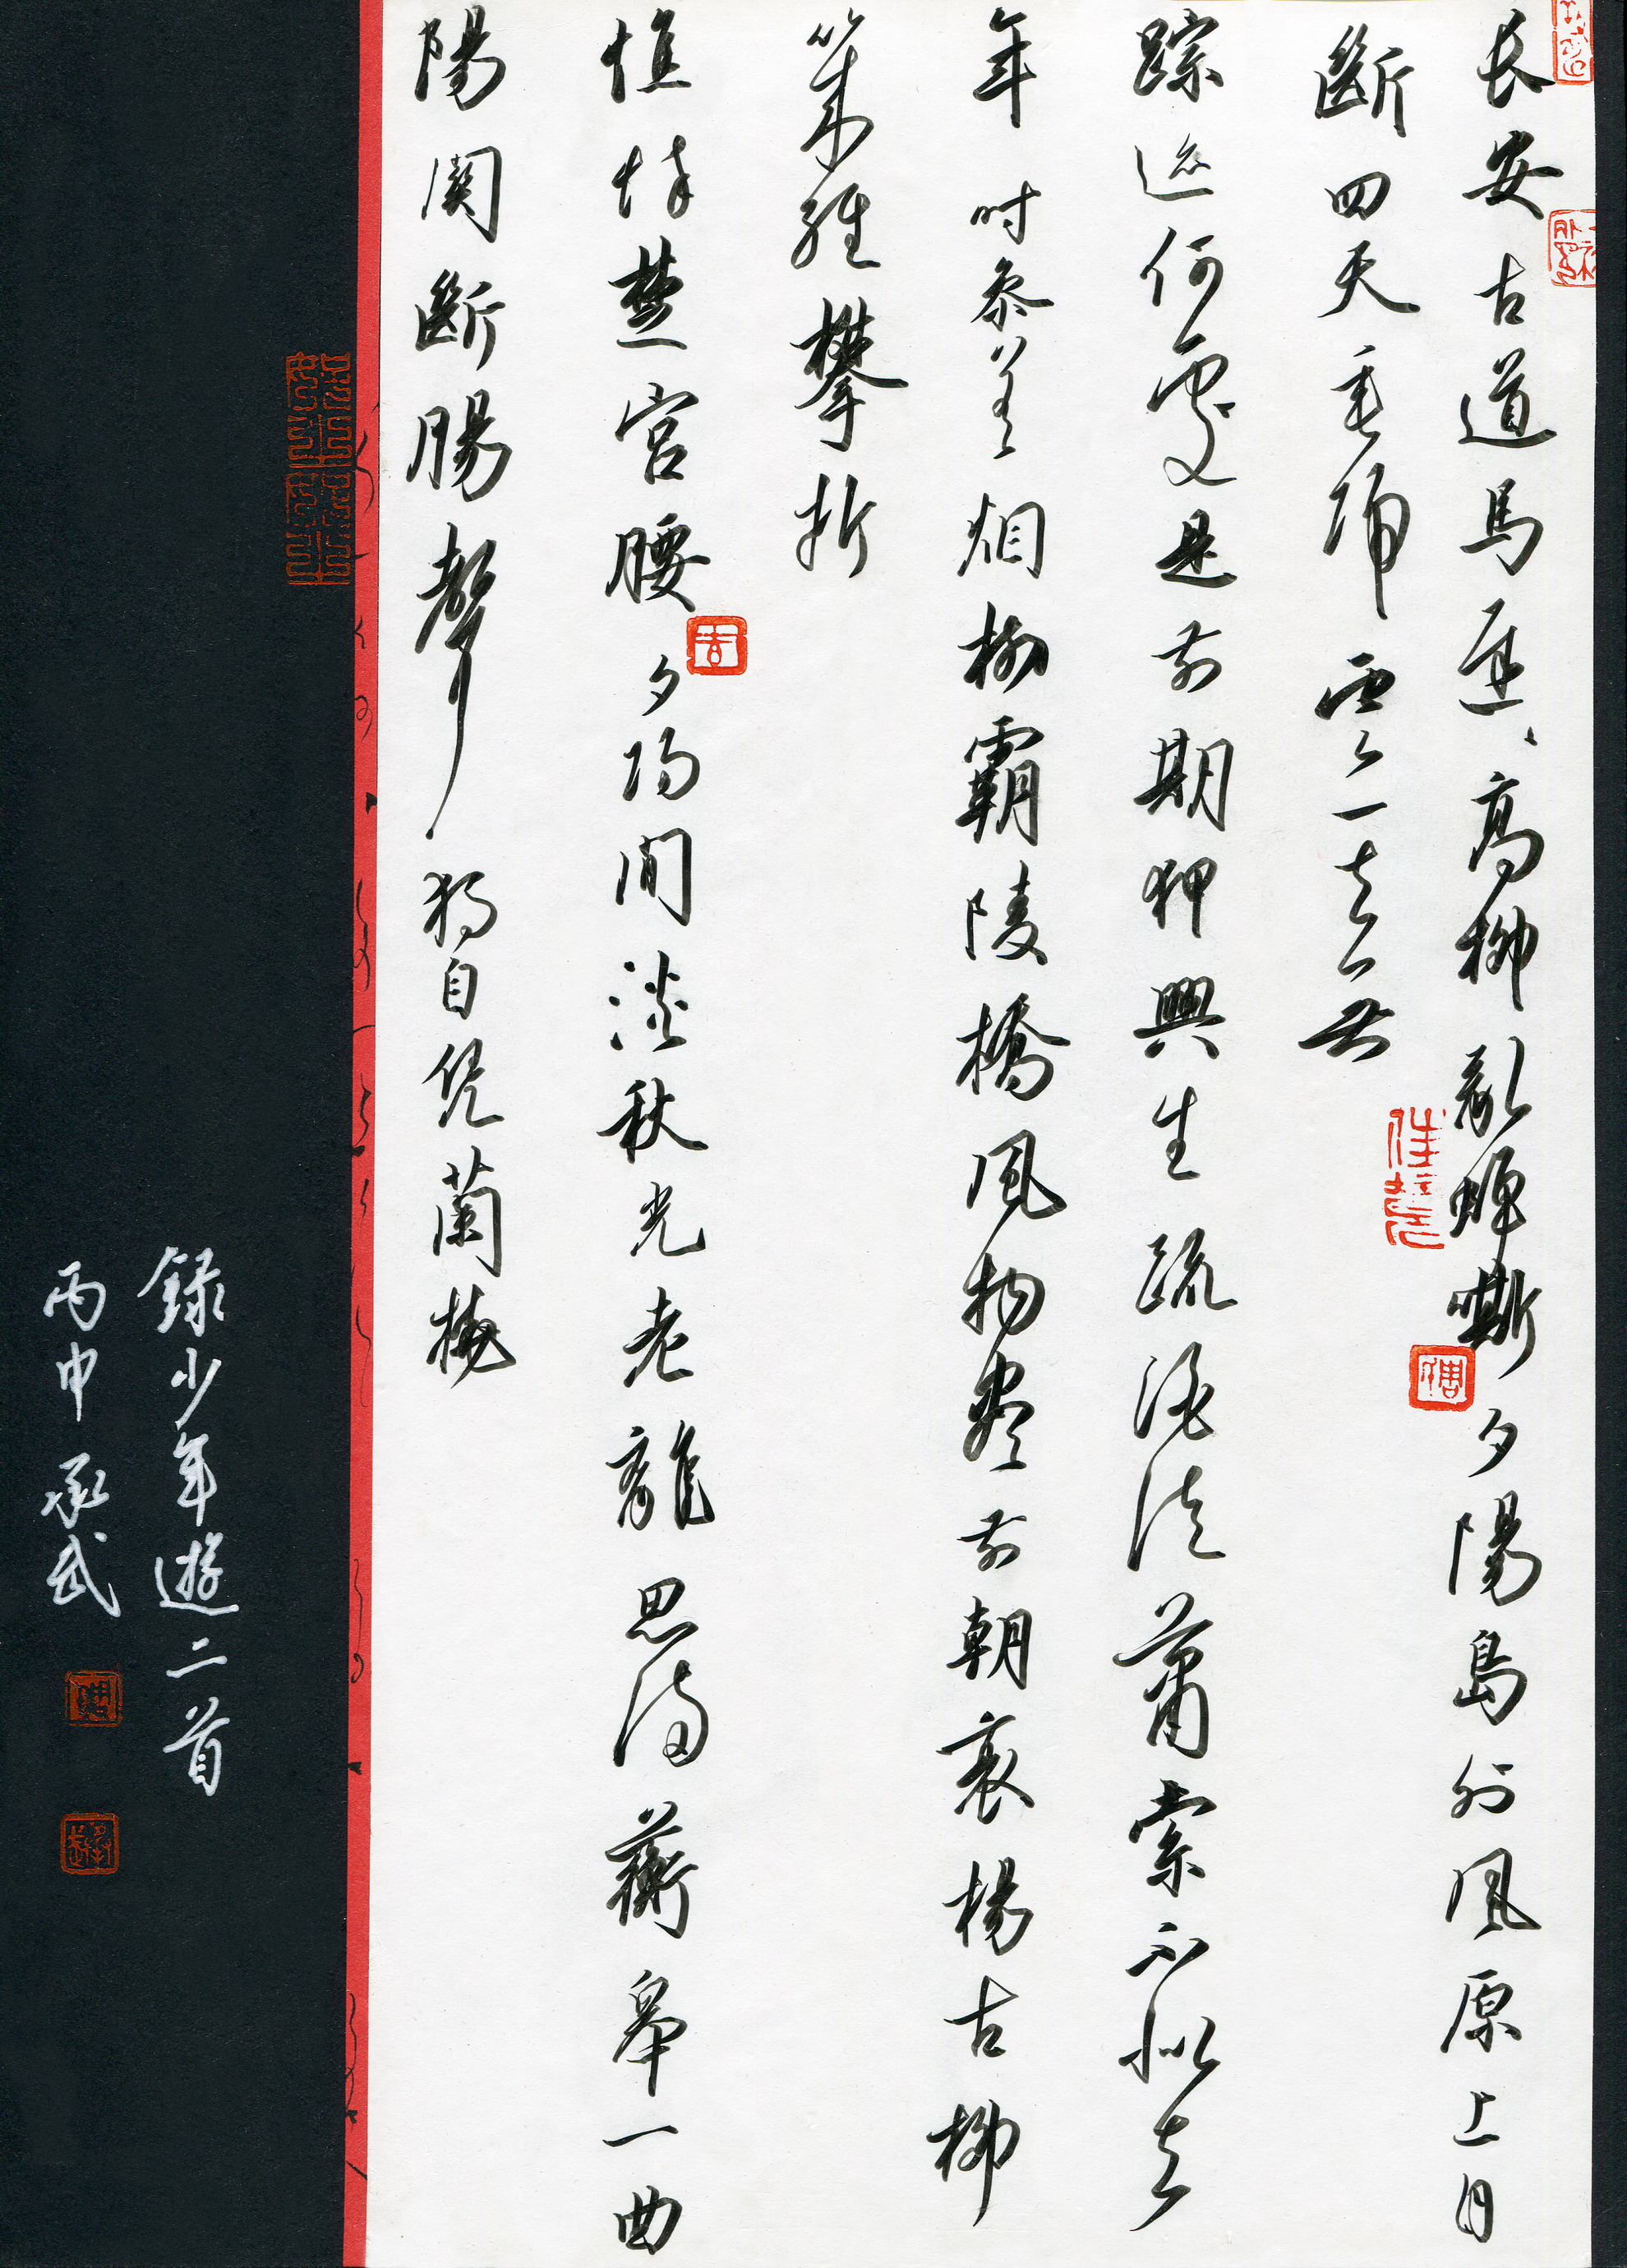 长安古道馬遲遲高柳亂蟬嘶夕陽島外風原上目
斷四天垂歸雲一去無
踪迹何處是前期狎興生疏酒徒蕭索不似去
年时參差烟樹霸陵橋風物盡前朝衰楊古柳
幾經攀折
憔悴楚宮腰夕陽閒淡秋光老離思滿蘅皋一曲
陽関斷腸聲獨自凭蘭橈
錄少年遊二首
丙申承武